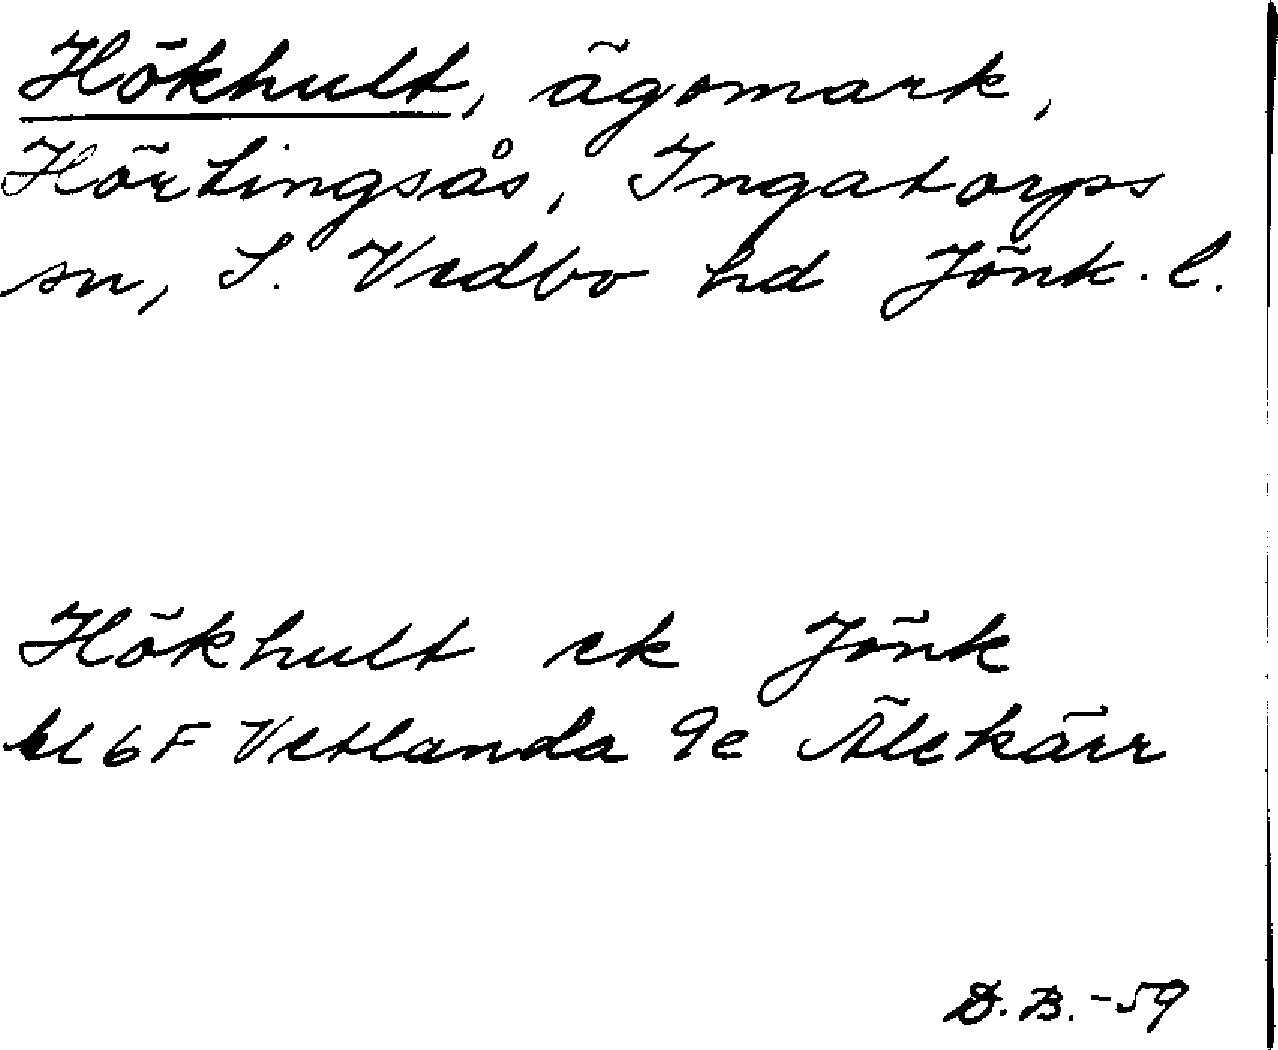 Hökhult, ägomark,
Hörtingsås, Ingatorps
sn, S. Vedbo hd Jönk. l.
Hökhult ek Jönk
bl 6F Vetlanda 9e Älekärr
D.B. -59